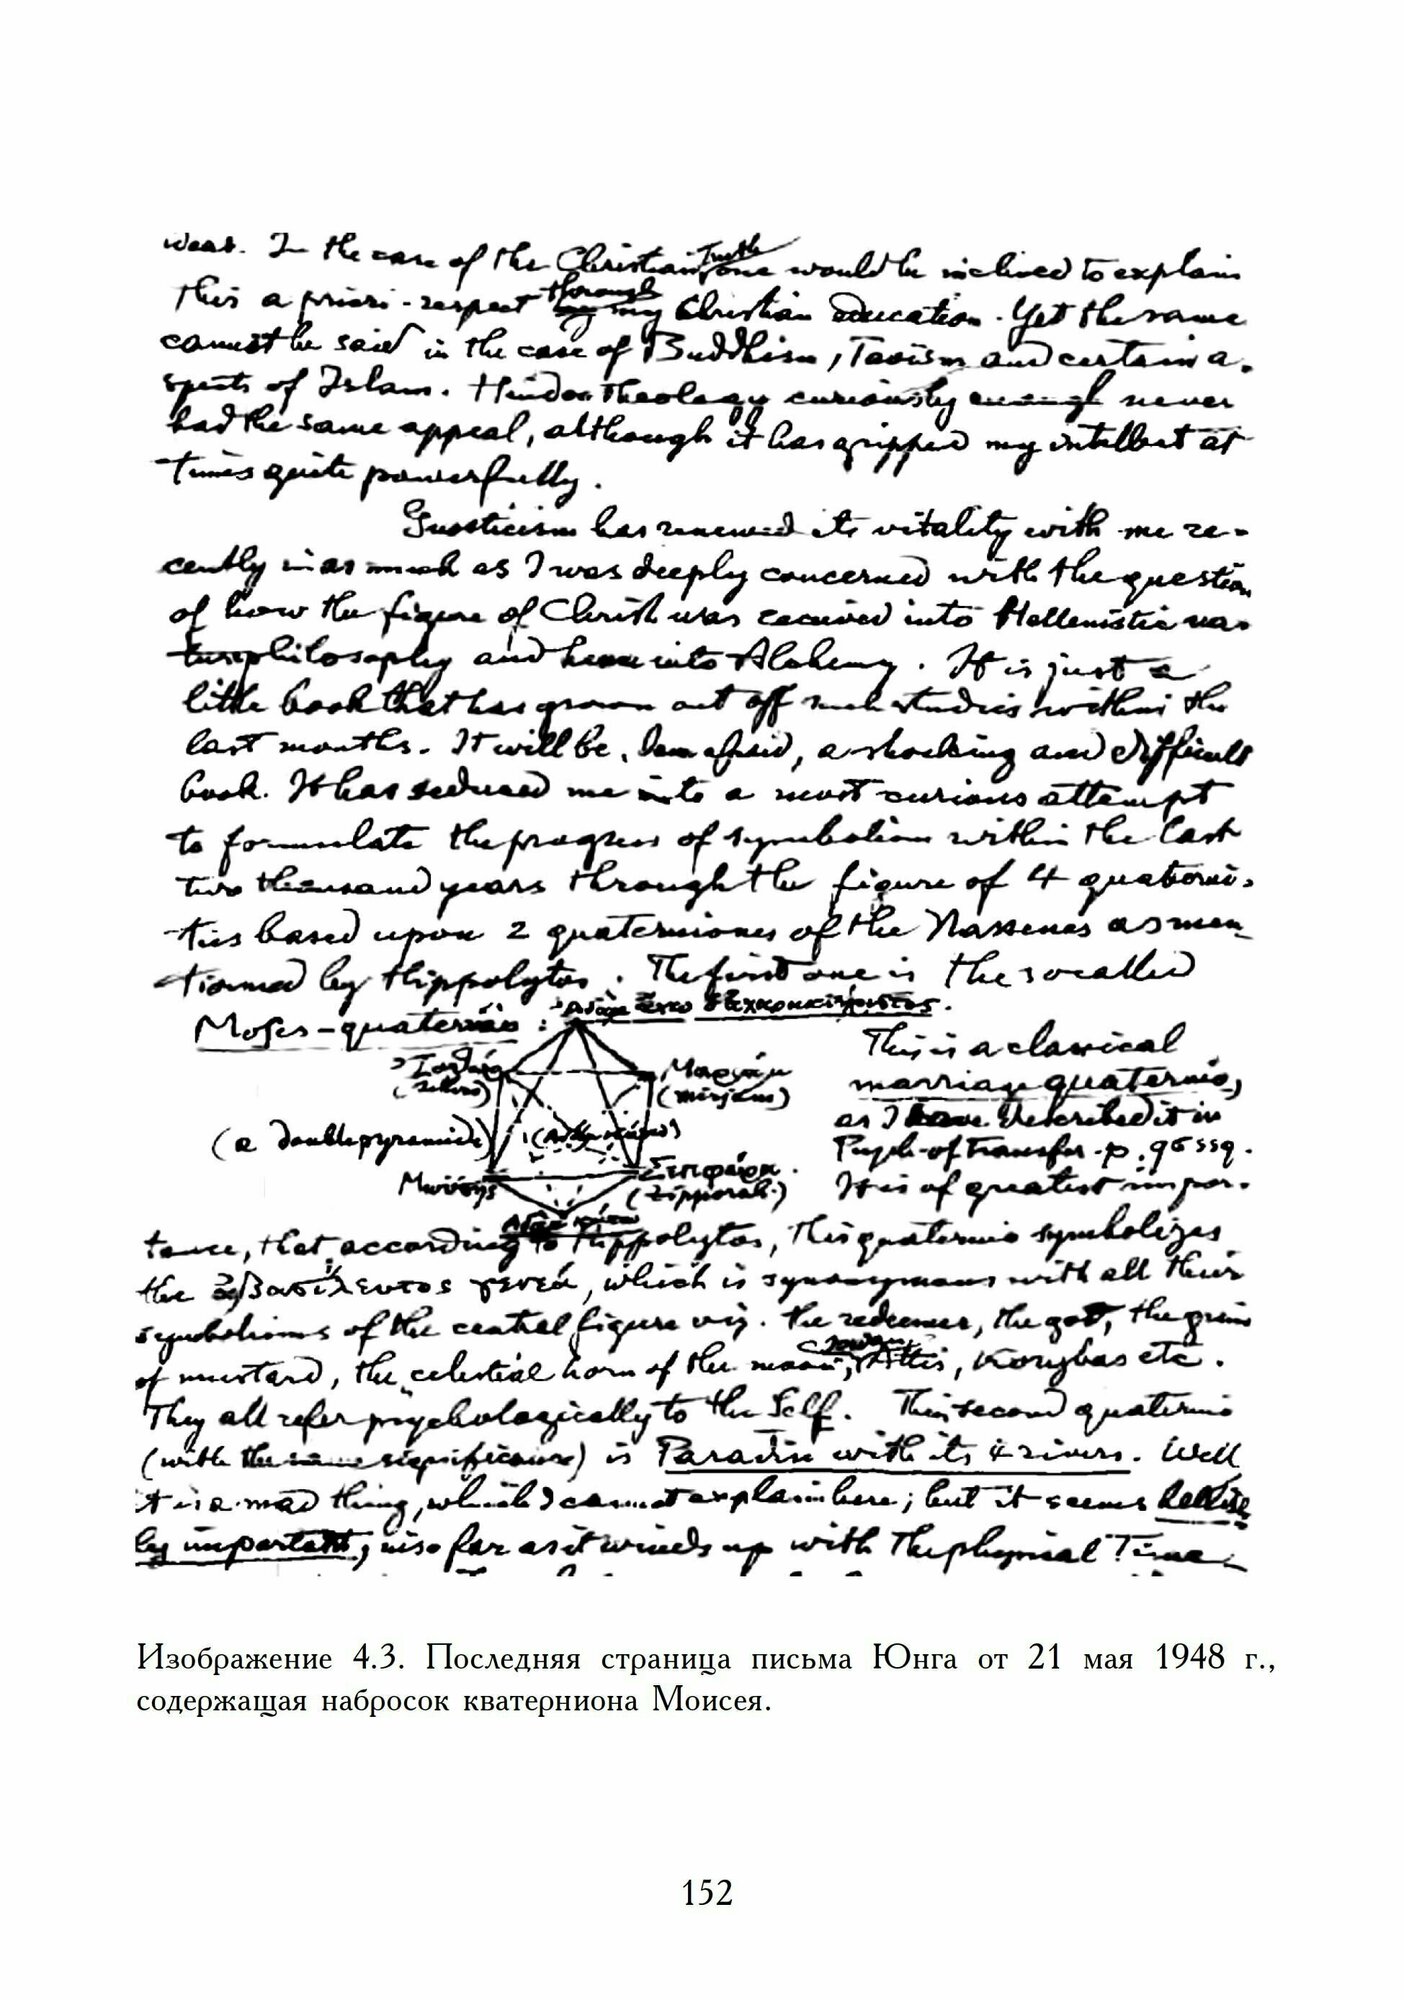 West. In the case of the Christian Truth one would be inclined to explain
this a priori-respect through my Christian education. Yet the same
cannot be said in the case of Buddhism, Taoism and certain a-
spects of Islam. Hindoo Theology curiously enough never
had the same appeal, although it has gripped my intellect at
times quite powerfully.
Gnosticism has renewed its vitality with me re-
cently in as much as I was deeply concerned with the question
of how the figure of Christ was received into Hellenistic na-
turephilosophy and hence into Alchemy. It is just a
little book that has grown out off such studies within the
last months. It will be, I am afraid, a shocking and difficult
book. It has seduced me into a most curious attempt
to formulate the progress of symbolism within the last
two thousand years through the figure of 4 quaterni-
ties based upon 2 quaterniones of the Nassenes as men-
tioned by Hippolytos. The first one is the so called
Moses-quaternio:
This is a classical
marriage quaternio,
as I have described it in
Psych. of Transfer. p.
It is of greatest impor-
Μαριάμ
(mirjam)
(a doublepyramide)
Μωϋσῆς
Σεπφώρα.
(Zipporah.)
tance, that according to Hippolytos, this quaternio symbolizes
the ἀβασίλευτος γενεά, which is synonymous with all their
symbolisms of the central figure viz. the redeemer, the god, the grain
of mustard, the celestial horn of the moon, Attis, Korybas etc.
They all refer psychologically to the Self. The second quaternio
(with the same significance) is Paradise with its 4 rivers. Well
it is a mad thing, which I cannot explain here; but it seems hellish-
ly important, inso far as it winds up with the physical Time-
Изображение 4.3. Последняя страница письма Юнга от 21 мая 1948 г.,
содержащая набросок кватерниона Моисея.
152